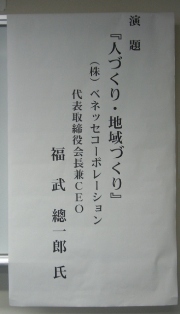 演題
『人づくり・地域づくり』
(株)ベネッセコーポレーション
代表取締役会長兼CEO
福武總一郎氏